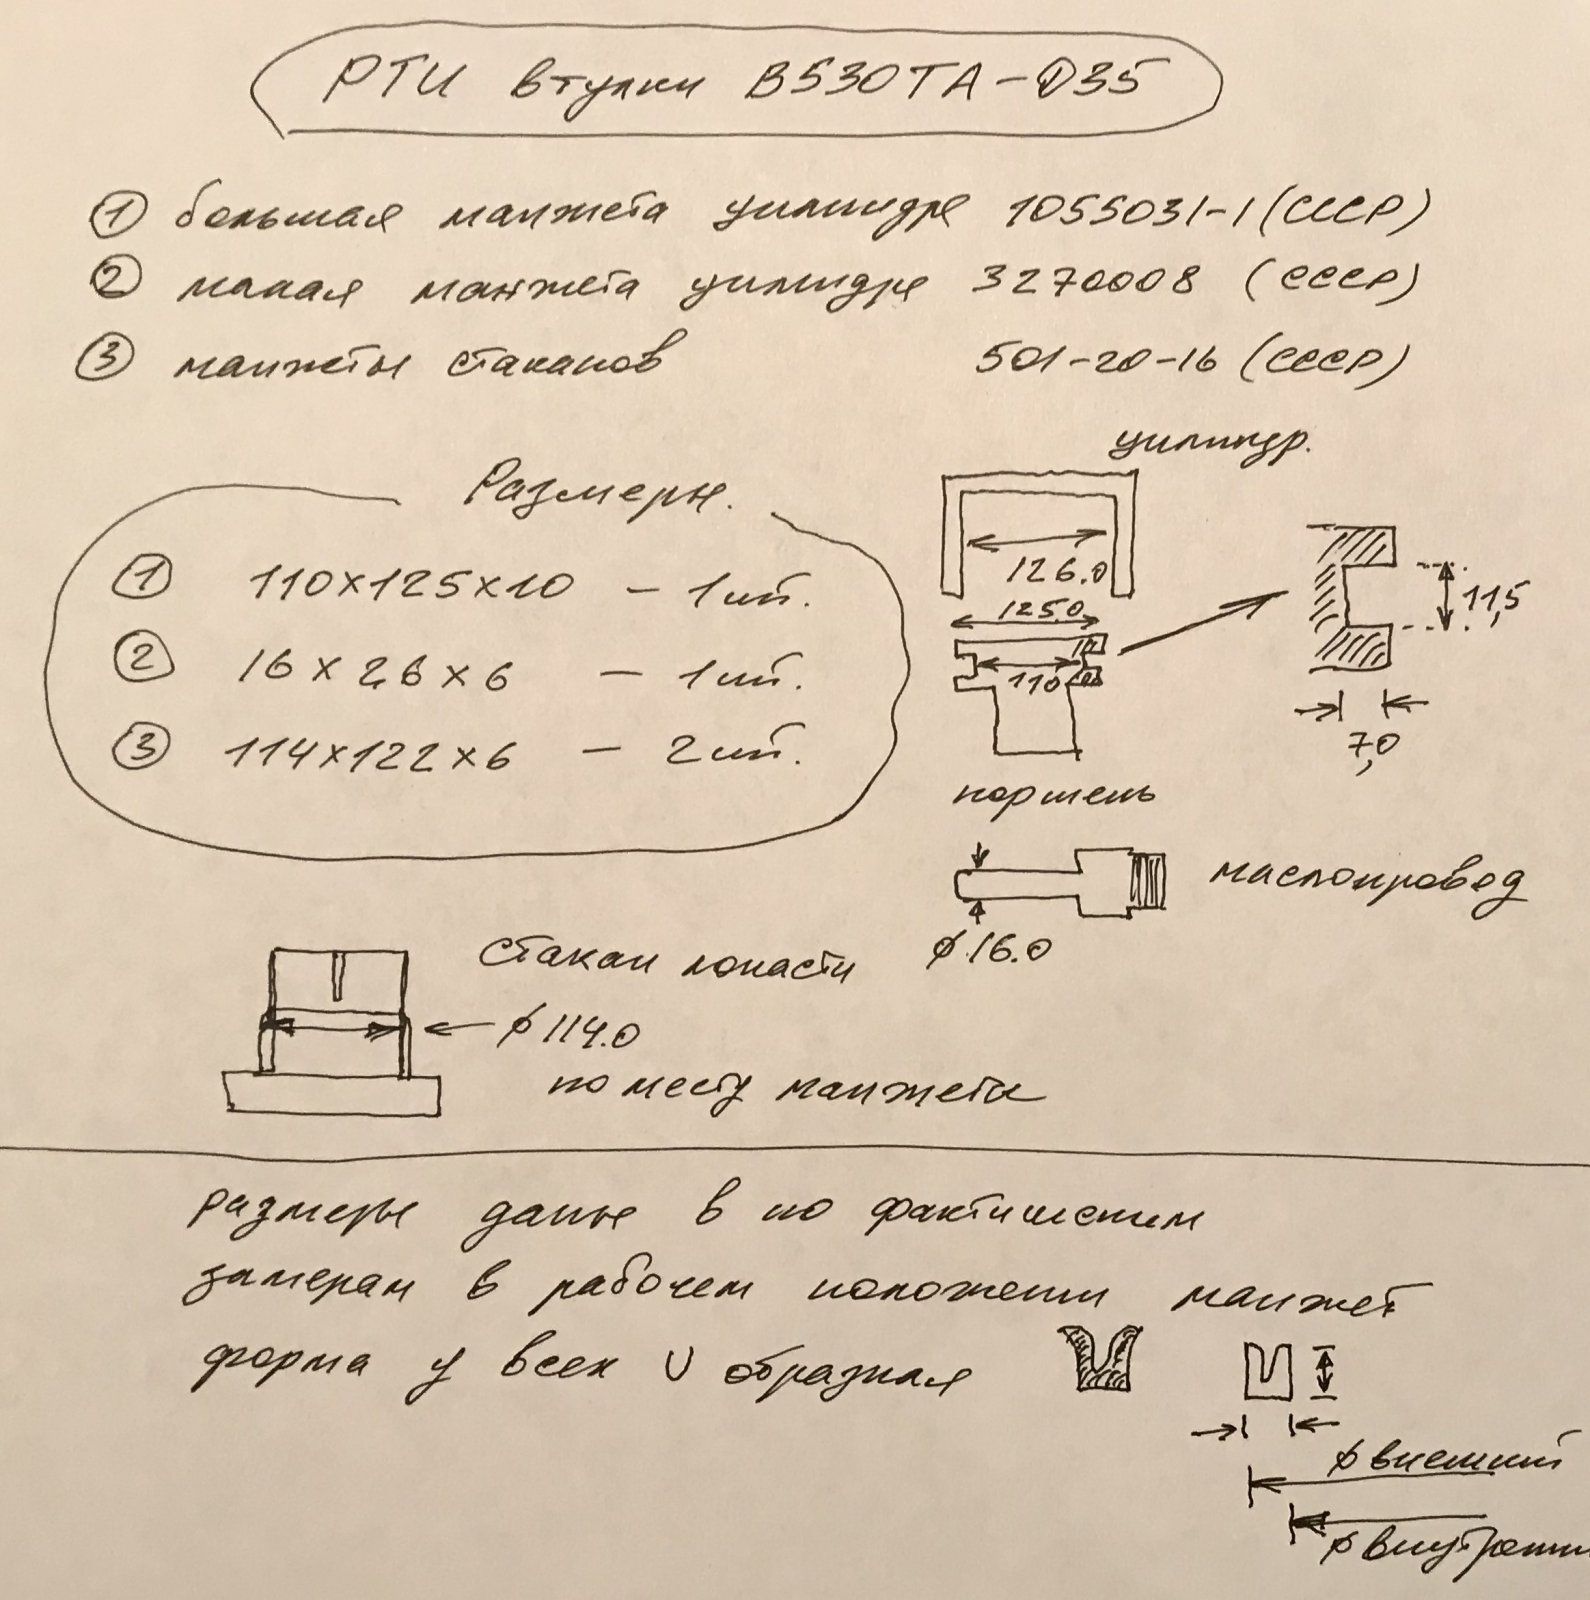 РТИ втулки В530ТА-Д35
① большая манжета цилиндра 1055031-1 (СССР)
② малая манжета цилиндра 3270008 (СССР)
③ манжеты стаканов 501-20-16 (СССР)
цилиндр.
Размеры.
① 110х125х10 - 1 шт.
② 16х26х6 - 1 шт.
③ 114х122х6 - 2 шт.
126.0
125.0
110
11,5
7,0
поршень
маслопровод
ø 16.0
стакан лопасти
ø 114.0
по месту манжеты
размеры даны в по фактическим
замерам в рабочем положении манжет
форма у всех U образная
ø внешний
ø внутренни